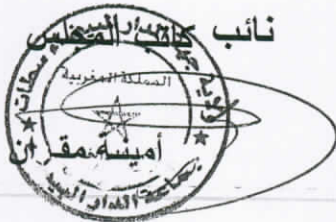 نائب كاتب المجلس
المملكة المغربية
أمينة مقران
جماعة الدار البيضاء